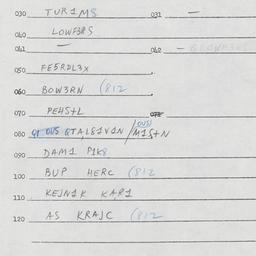 030 TUR1M8 031 —
040 LOWF3RS
041 — 042 —
050 FE5RDL3X
060 BOW3RN (812
070 PEHS+L 072
080 GTAL81V1N /M1S+N
090 DAM1 P1K8
100 BUP HERC (812
110 KEJN1K KAR1
120 AS KRAJC (812